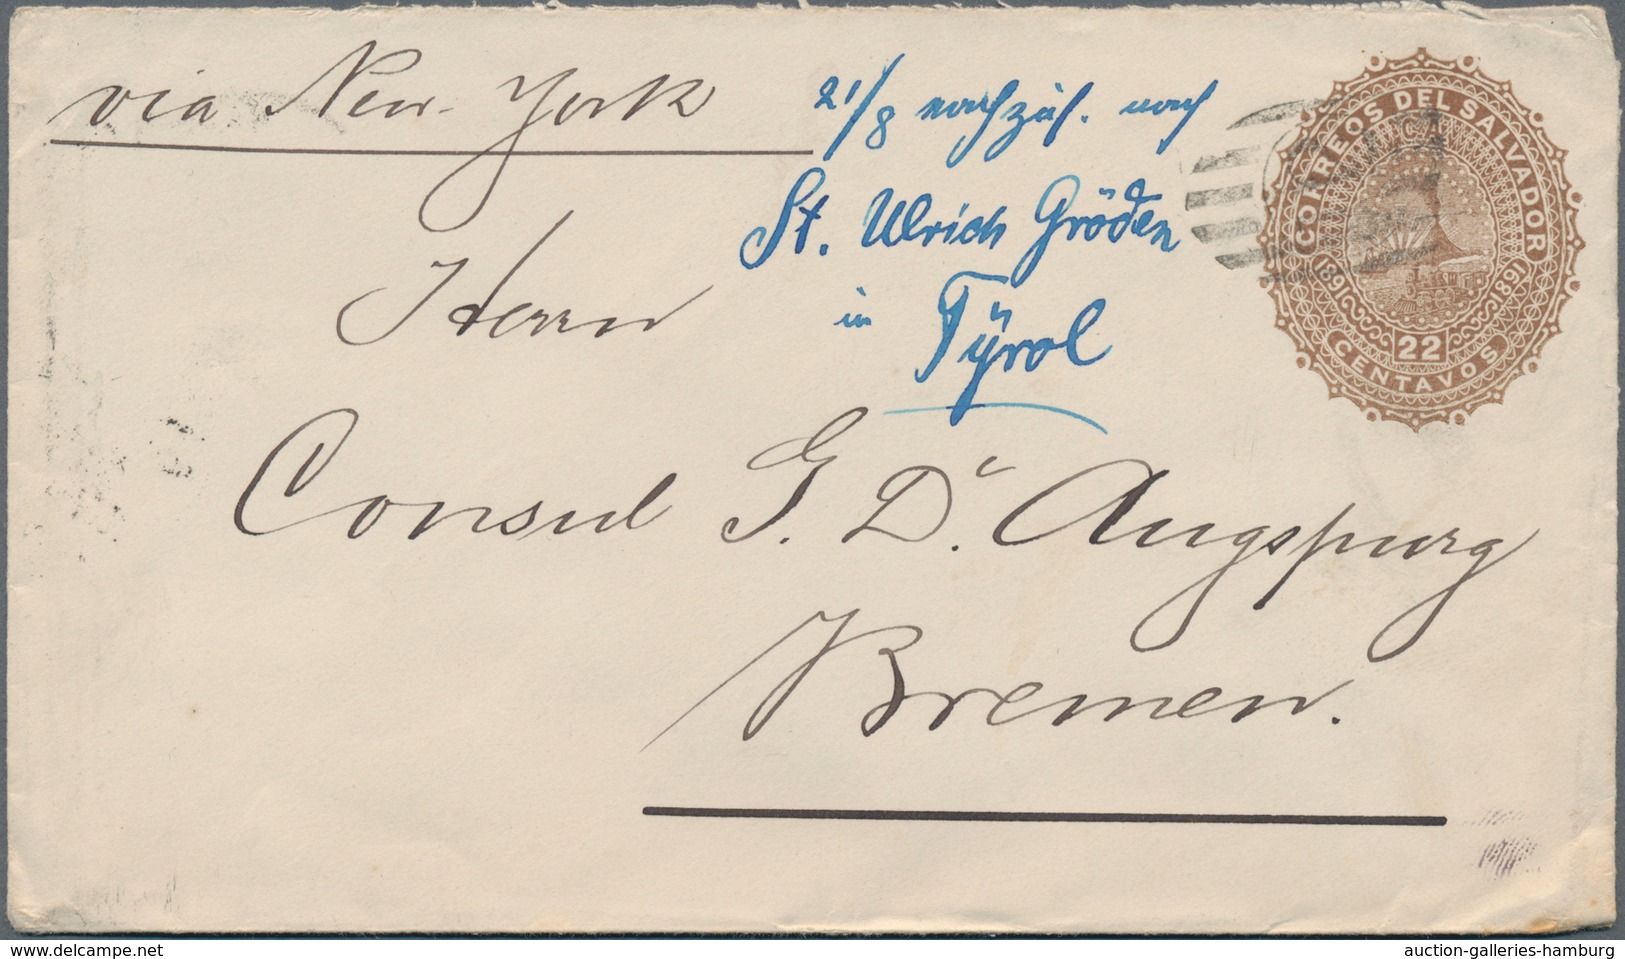 via New-York
21/8 nachzus. nach
St. Ulrich Gröden
in Tÿrol
CORREOS DEL SALVADOR
1891 1891
22
CENTAVOS
Herrn
Consul G. D. Augspurg
Bremen.
www.delcampe.net
auction-galleries-hamburg